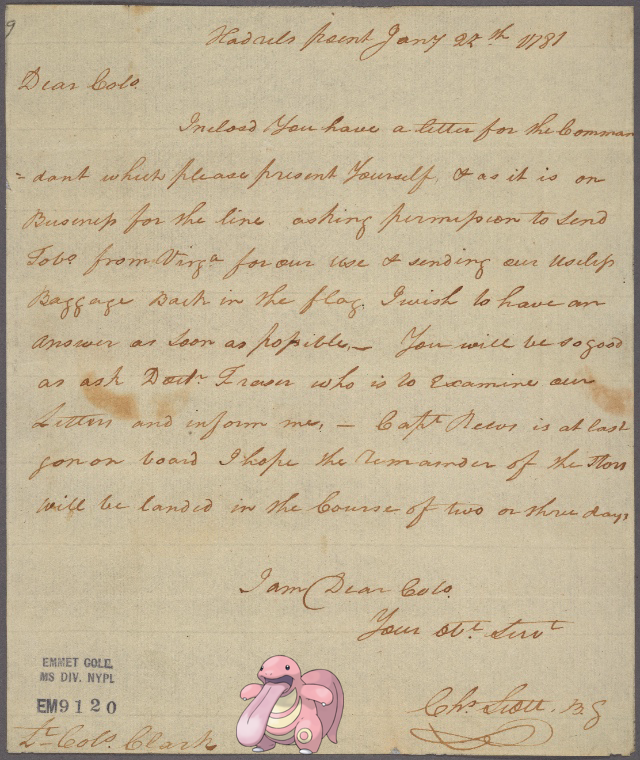 9
Hadrels point Jany 22th 1781
Dear Colo.
Inclosd You have a letter for the Comman
= dant which please present Yourself, & as it is on
Business for the line asking permission to send
Tobo from Virga for our use & sending our useless
Baggage Back in the flag. I wish to have an
answer as soon as possible, — You will be so good
as ask Doctr. Fraser who is to Examine our
Letters and inform me, — Capt. is at last
gon on board I hope the remainder of the
will be landed in the Course of two or three days
I am Dear Colo.
Your Obt. Servt
Chs. Scott. B.G
EMMET COLL.
MS DIV. NYPL
EM9120
Lt. Colo. Clark